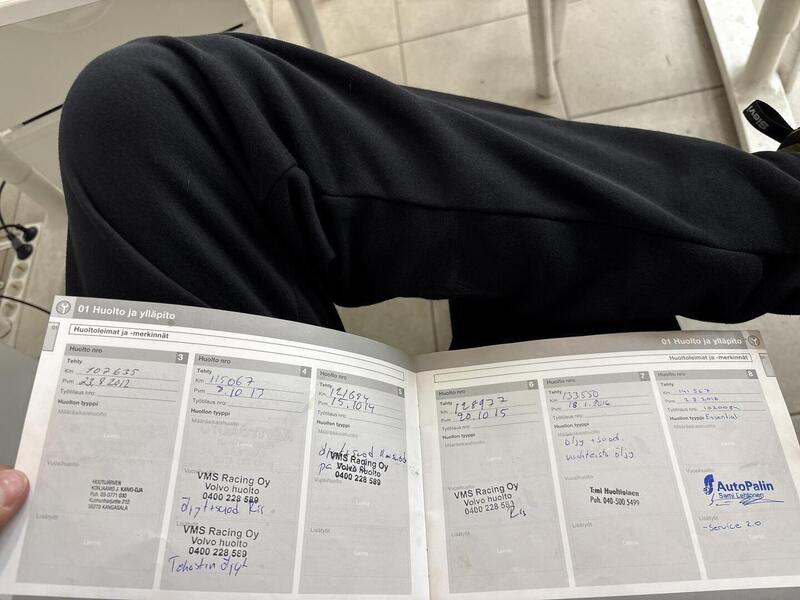 Sievi
01 Huolto ja ylläpito
Huoltoleimat ja -merkinnät
Huolto nro 3
Tehty
Km 107635
Pvm 23.8.2012
Työtilaus nro:
Huollon tyyppi
Määräaikaishuolto
Leima
Vuosihuolto
HUOLTUKIVEN
KORJAAMO J. KANG-OJA
Puh. 03-3771 830
36270 KANGASALA
Lisätyöt
Leima
Huolto nro 4
Tehty
Km 115067
Pvm
Työtilaus nro:
Huollon tyyppi
Määräaikaishuolto
Vuosihuolto
VMS Racing Oy
Volvo huolto
0400 228 589
Lisätyöt
VMS Racing Oy
Volvo huolto
0400 228 589
Huolto nro 5
Tehty
Km 121684
Pvm 15.10.14
Työtilaus nro:
Huollon tyyppi
Määräaikaishuolto
VMS Racing Oy
Volvo huolto
0400 228 589
Lisätyöt
Leima
01 Huolto ja ylläpito
Huoltoleimat ja -merkinnät
Huolto nro 6
Tehty
Km 128977
Pvm 20.10.15
Työtilaus nro:
Huollon tyyppi
Määräaikaishuolto
Leima
Vuosihuolto
VMS Racing Oy
Volvo huolto
0400 228 589
Lisätyöt
Leima
Huolto nro 7
Tehty
Km 133550
Pvm 18.1.2016
Työtilaus nro:
Huollon tyyppi
Määräaikaishuolto
öljy + suod.
öljy
Vuosihuolto
Tmi Huoltiainen
Puh. 040-500 5499
Lisätyöt
Leima
Huolto nro 8
Tehty
Km 141567
Pvm 2.8.2016
Työtilaus nro:
Huollon tyyppi Essential
Määräaikaishuolto
Leima
Vuosihuolto
AutoPalin
Sami Lehtonen
Lisätyöt
-Service 2.0
Leima